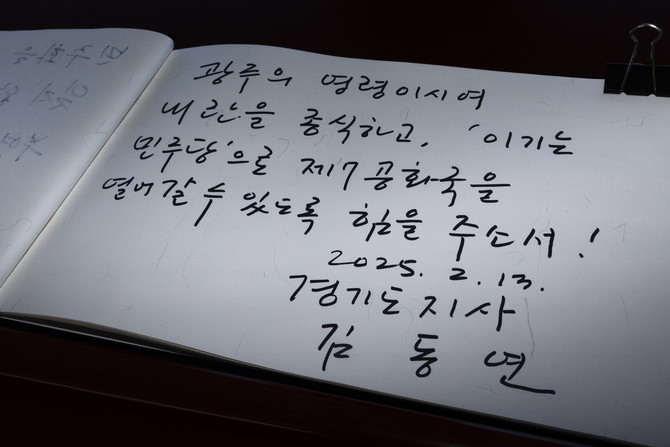 광주의 영령이시여
내란을 종식하고, '이기는
민주당'으로 제7공화국을
열어갈 수 있도록 힘을 주소서!
2025. 2. 13.
경기도지사
김동연